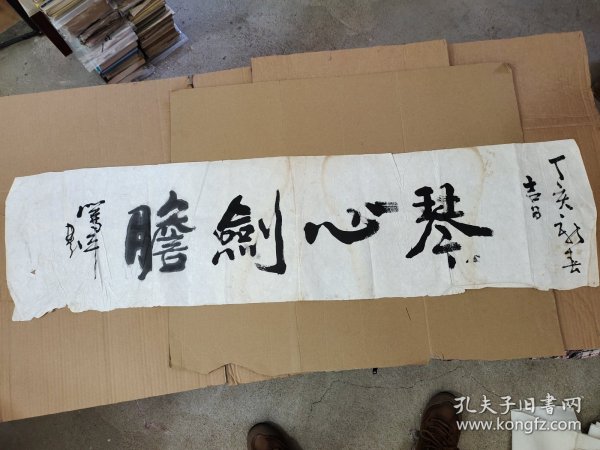 丁亥新春
吉日
琴心劍膽
孔夫子旧书网
www.kongfz.com